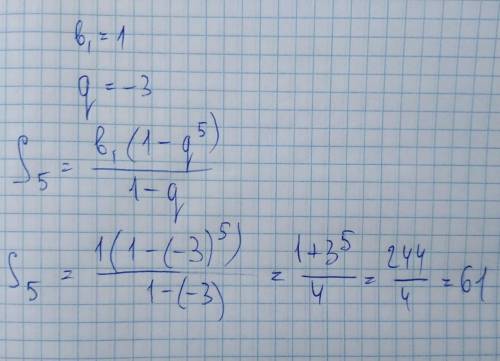 b₁ = 1
q = -3
S₅ = b₁(1 - q⁵) / 1 - q
S₅ = 1(1 - (-3)⁵) / 1 - (-3) = 1 + 3⁵ / 4 = 244 / 4 = 61